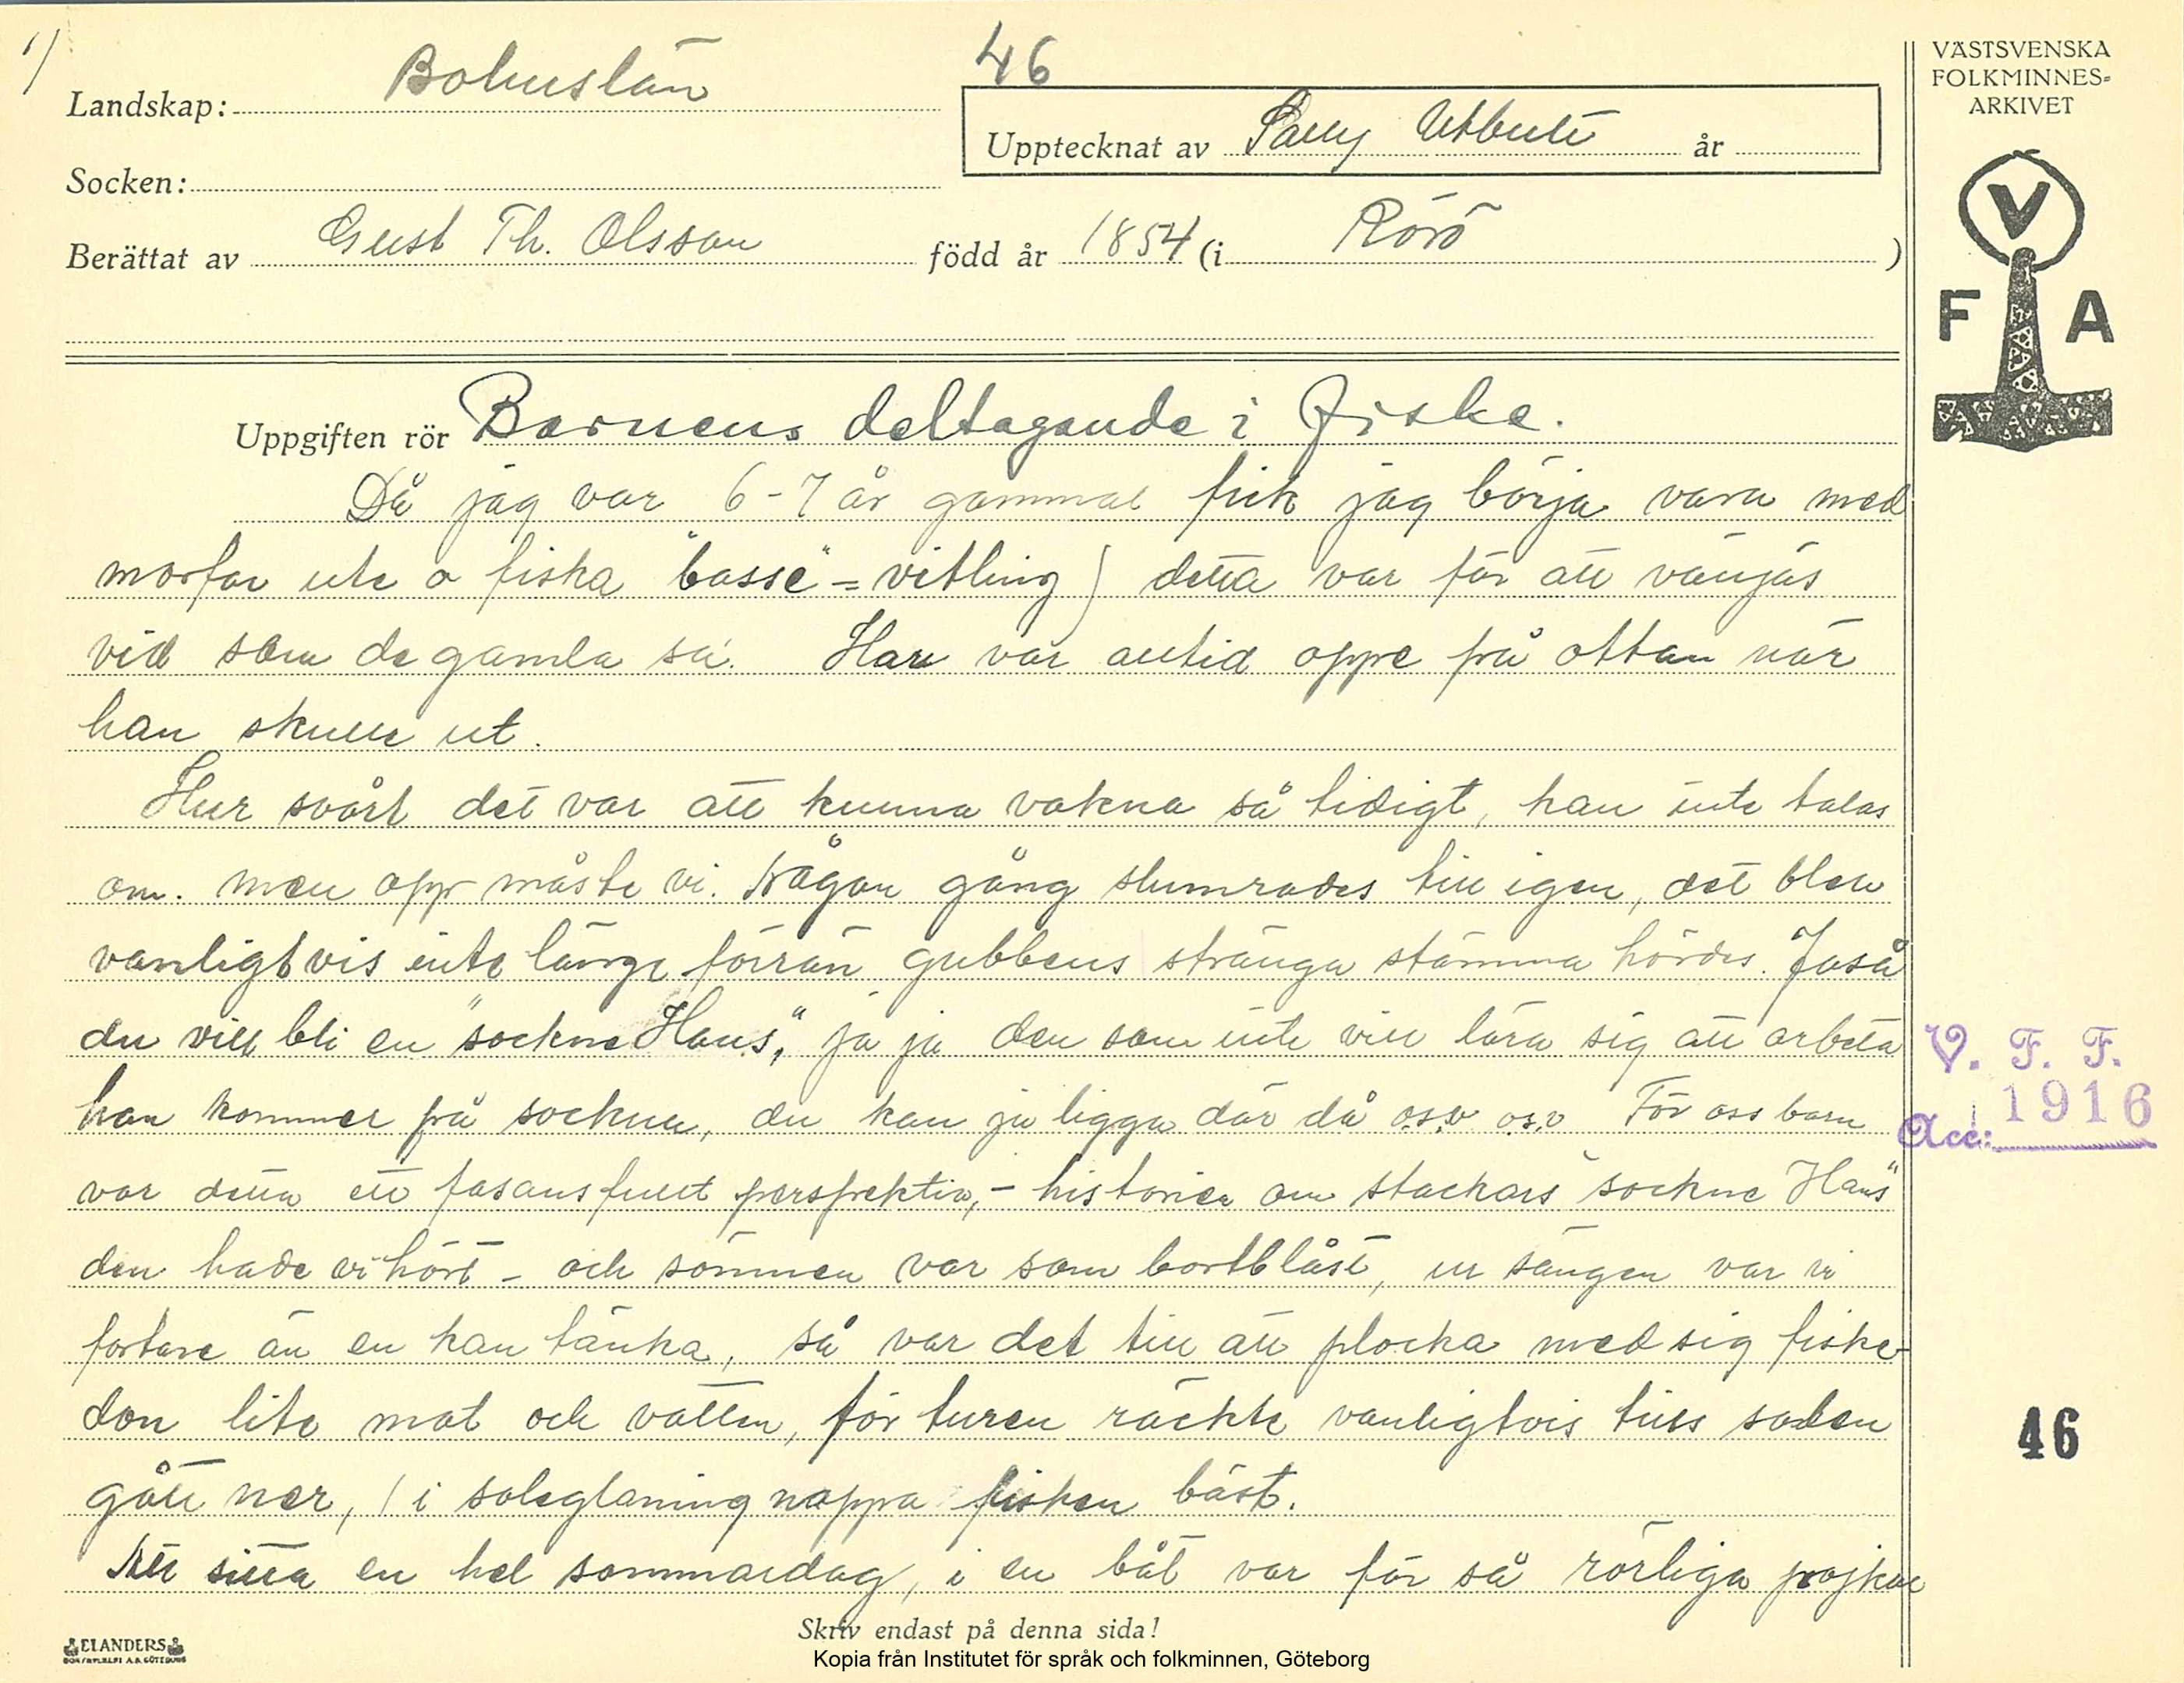 1)
Landskap: Bohuslän
46
VÄSTSVENSKA
FOLKMINNES=
ARKIVET
Upptecknat av Sally Utbult år
Socken:
Berättat av Gust Th. Olsson född år 1854 (i Rörö )
V
F A
Uppgiften rör Barnens deltagande i fiske.
Då jag var 6-7 år gammal fick jag börja vara med
morfar ute o fiska "basse" = vitling) detta var för att vänjas
vid som de gamla sa. Han var alltid oppe på ottan när
han skulle ut.
Hur svårt det var att kunna vakna så tidigt, kan inte talas
om. men opp måste vi. Någon gång slumrades till igen, det blev
vanligtvis inte länge förrän gubbens stränga stämma hördes. Jaså
du vill bli en "sockne Hans", ja ja den som inte vill lära sig att arbeta
han kommer på socknen, du kan ju ligga där då o.s.v o.s.v För oss barn
var detta ett fasansfullt perspektiv, - historien om stackars "sockne Hans"
den hade vi hört - och sömnen var som bortblåst, ur sängen var vi
fortare än en kan tänka, så var det till att plocka med sig fiske-
don lite mat och vatten, för turen räckte vanligtvis tills solen
gått ner, (i soleglaning nappa fisken bäst.
Att sitta en hel sommardag, i en båt var för så rörliga pojkar
V. F. F.
Acc: 1916
46
Skriv endast på denna sida!
ELANDERS
BOKTRYCKERI A.B. GÖTEBORG
Kopia från Institutet för språk och folkminnen, Göteborg